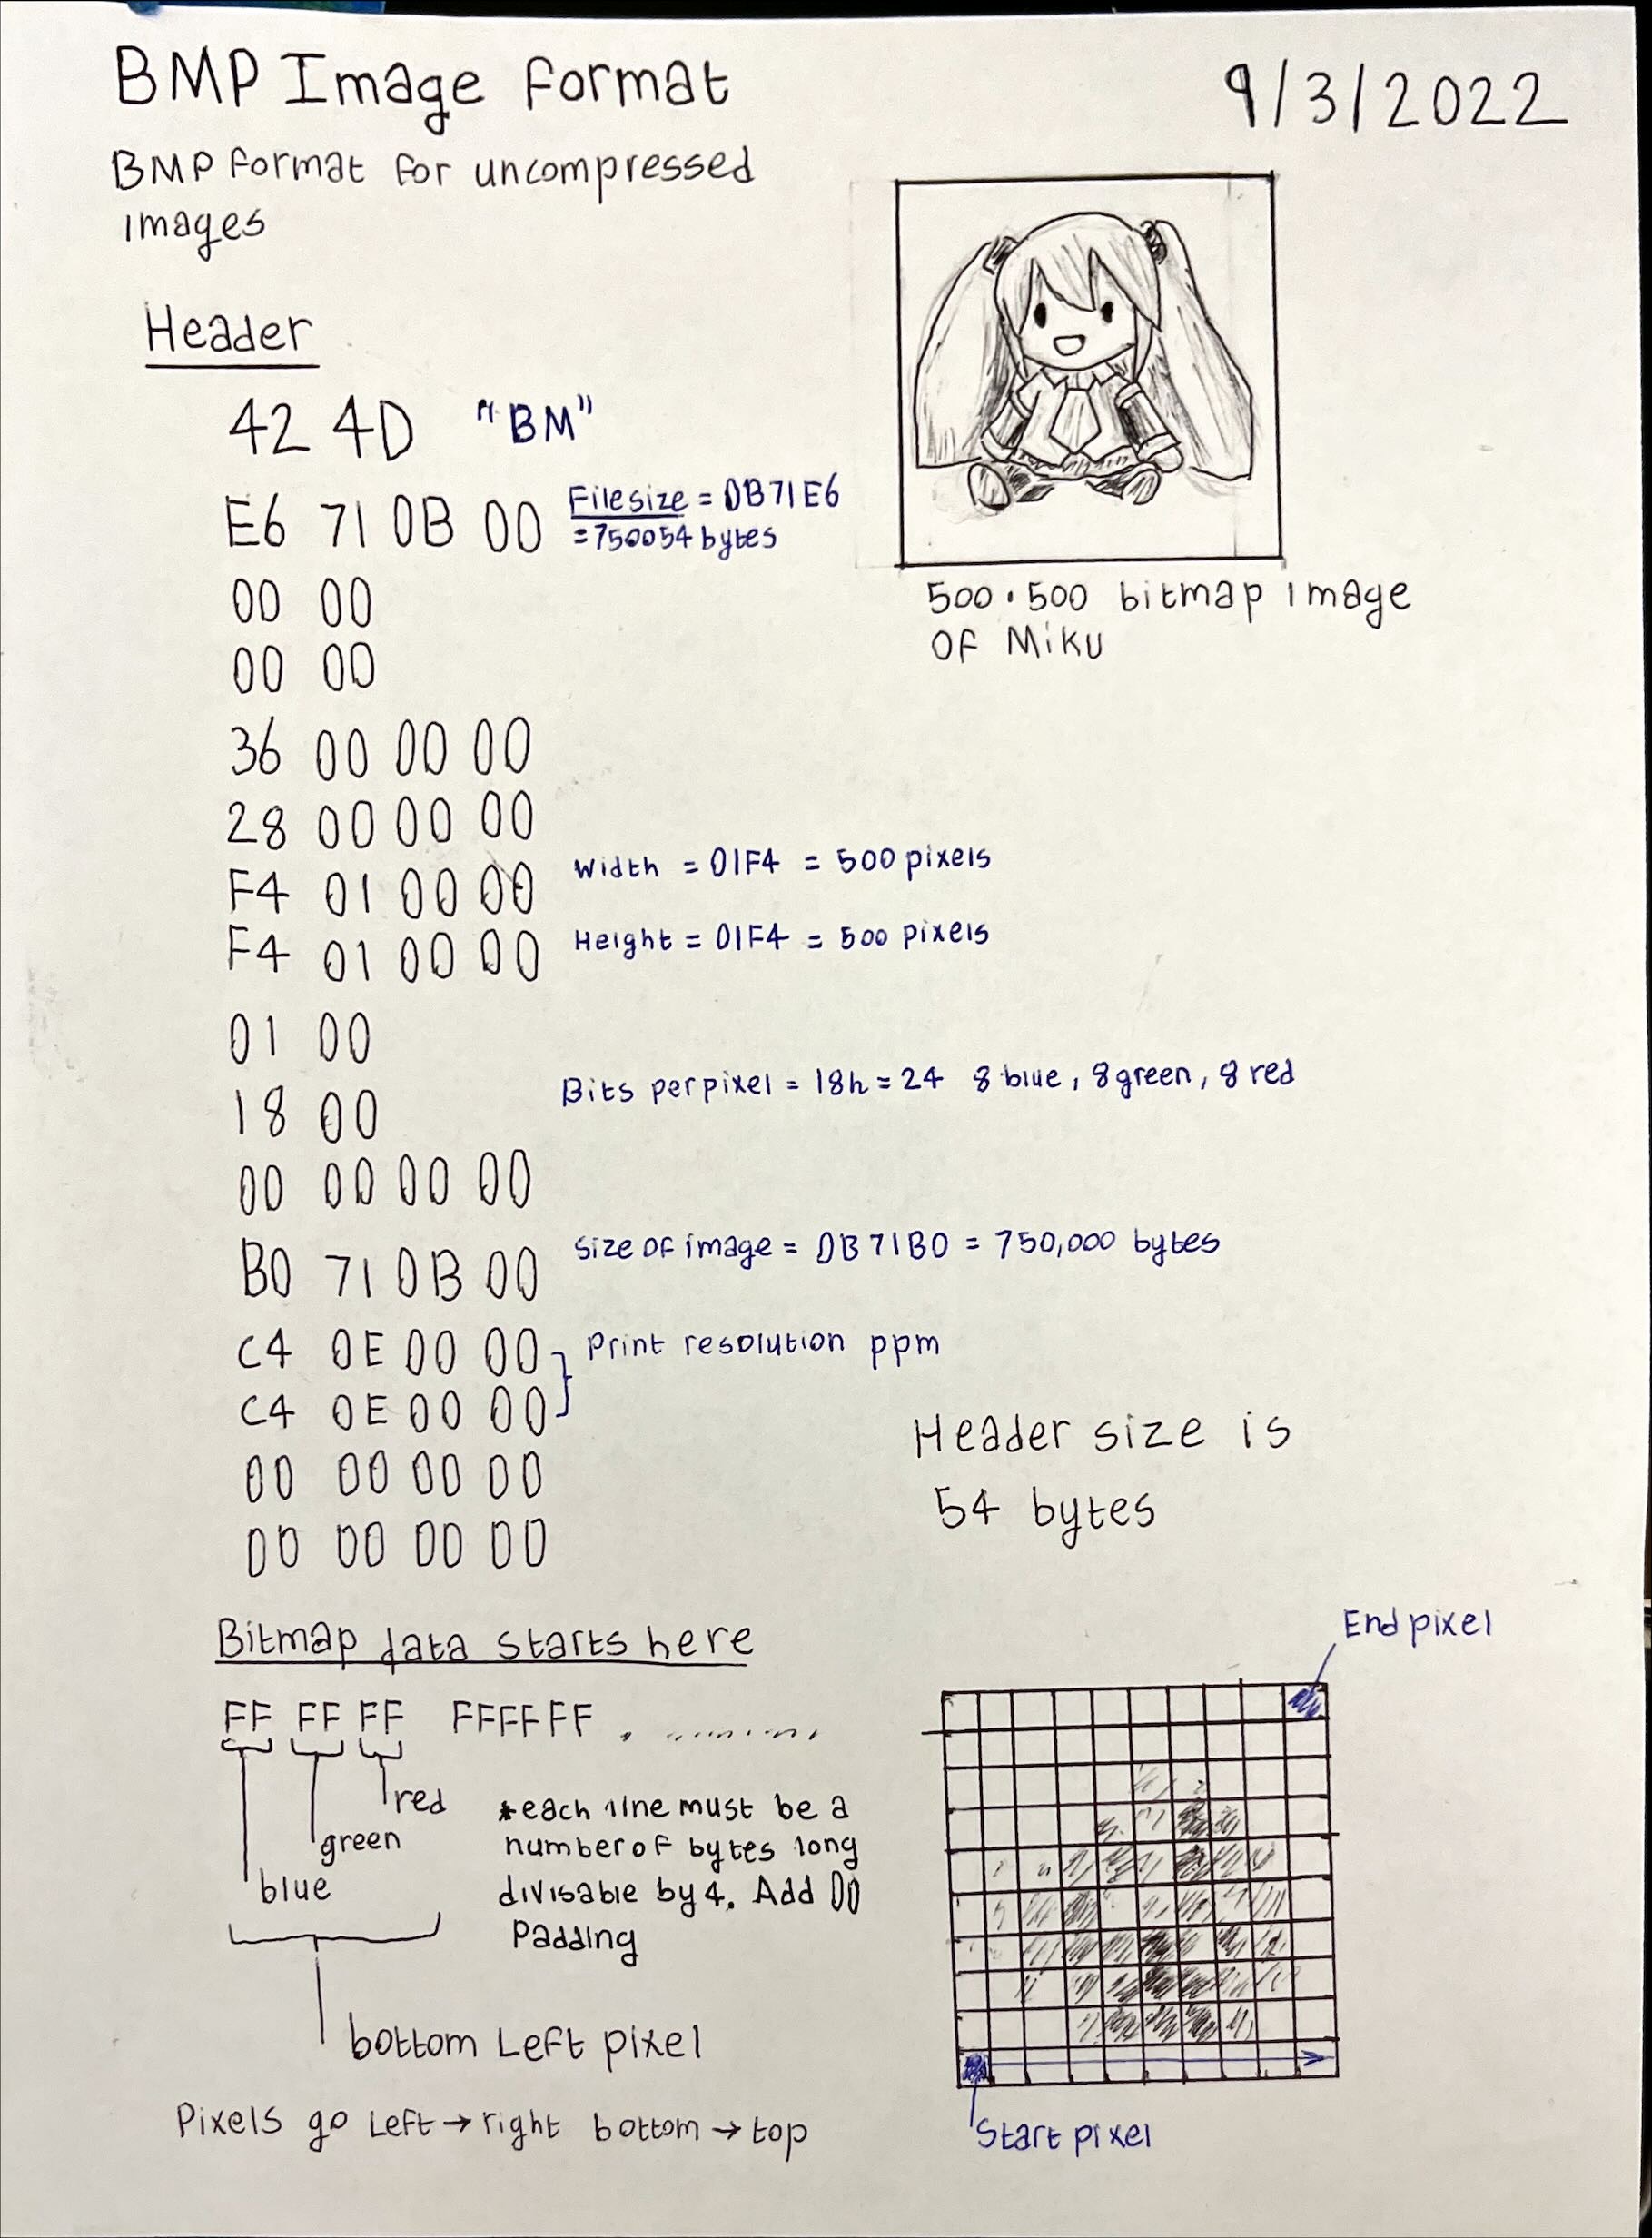 BMP Image Format
9/3/2022
BMP Format for uncompressed
images
Header
42 4D "BM"
E6 71 0B 00 Filesize = 0B71E6
=750054 bytes
00 00
00 00
36 00 00 00
28 00 00 00
F4 01 00 00 Width = 01F4 = 500 pixels
F4 01 00 00 Height = 01F4 = 500 pixels
01 00
18 00 Bits per pixel = 18h = 24 8 blue, 8 green, 8 red
00 00 00 00
B0 71 0B 00 Size of image = 0B71B0 = 750,000 bytes
C4 0E 00 00 Print resolution ppm
C4 0E 00 00
00 00 00 00
00 00 00 00
500·500 bitmap image
of Miku
Header size is
54 bytes
Bitmap data starts here
FF FF FF FFFFFF . .........
red
green
blue
*each line must be a
number of bytes long
divisable by 4. Add 00
Padding
bottom Left pixel
Pixels go Left → right bottom → top
End pixel
Start pixel